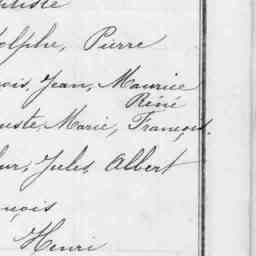 ptiste
dolphe, Pierre
çois, Jean, Maurice
Réné
uste, Marie, François.
ur, Jules, Albert
nçois
Henri